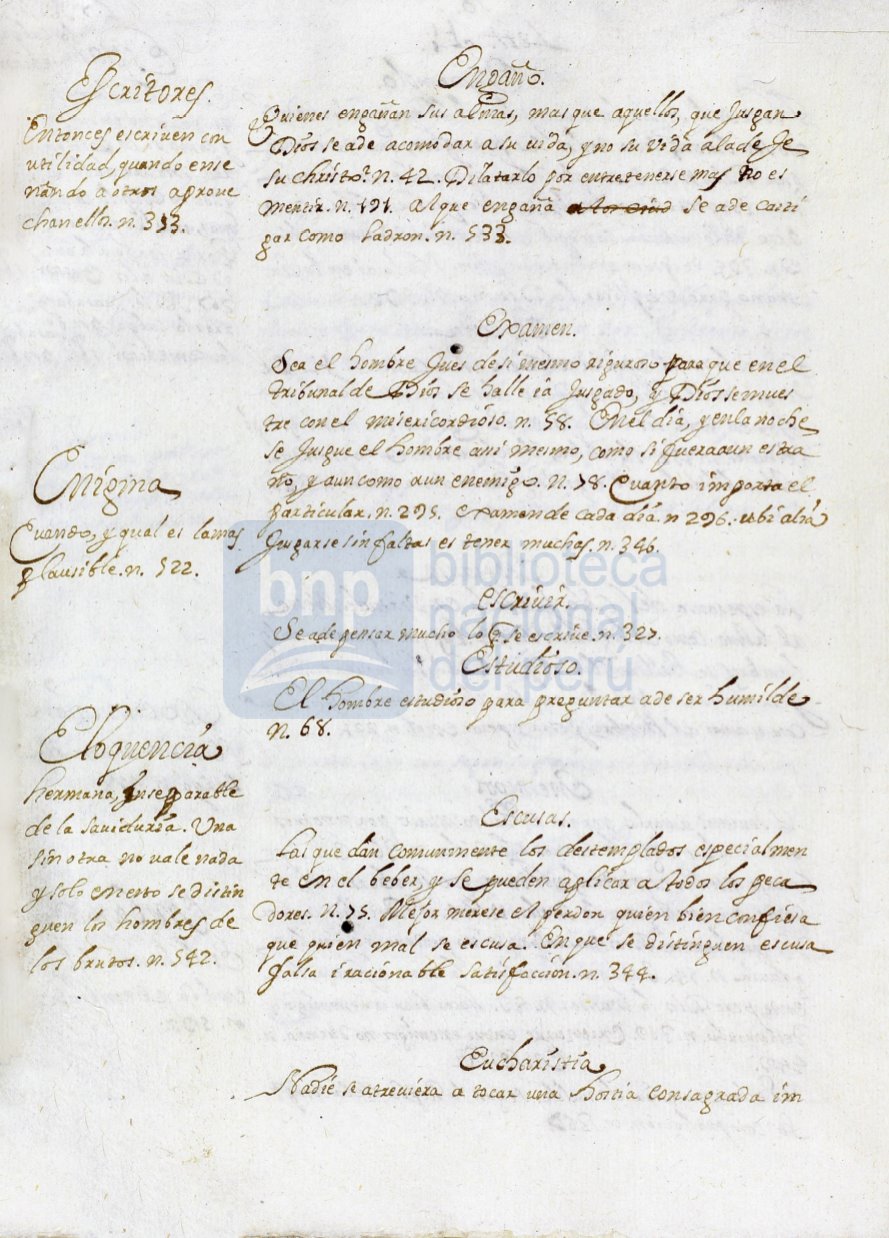 Escritores.
Entonces escriven con
utilidad, quando ense
ñando a otros aprove
chan ellos. n. 353.
Enigma
Cuando, y qual es la mas
plausible. n. 522.
Eloquencia
hermana, Inseparable
de la saviduria. Una
sin otra no vale nada
y solo en esto se distin
guen los hombres de
los brutos. n. 542.
Engaño.
Quienes engañan sus almas, mas que aquellos, que Jusgan
Dios se a de acomodar a su vida, y no su vida a la de Je
su Christo? n. 42. Dilatarlo por entretenerse mas no es
mentir. n. 191. al que engaña se a de casti
gar como ladron. n. 533.
Examen.
Sea el hombre Jues de si mesmo riguroso para que en el
tribunal de Dios se halle ia Jusgado, y Dios se mues
tre con el misericordioso. n. 58. En el dia, y en la noche
se Jusgue el hombre a si mesmo, como si fuera a un estra
ño, y aun como a un enemigo. n. 78. Cuanto importa el
particular. n. 295. examen de cada dia. n 296. ubi alia
Jusgarse sin faltas es tener muchas. n. 346.
escrivir.
Se a de pensar mucho lo q se escrive. n. 327.
Estudioso.
El hombre estudioso para preguntar a de ser humilde
n. 68.
Escusas.
Las que dan comunmente los destemplados especialmen
te en el beber, y se pueden aplicar a todos los peca
dores. n. 75. Mejor merese el perdon quien bien confiesa
que quien mal se escusa. En que se distinguen escusa
falsa i racionable satisfaccion. n. 344.
Eucharistia
Nadie se atreviera a tocar una hostia consagrada im
bnp biblioteca
nacional
del perú